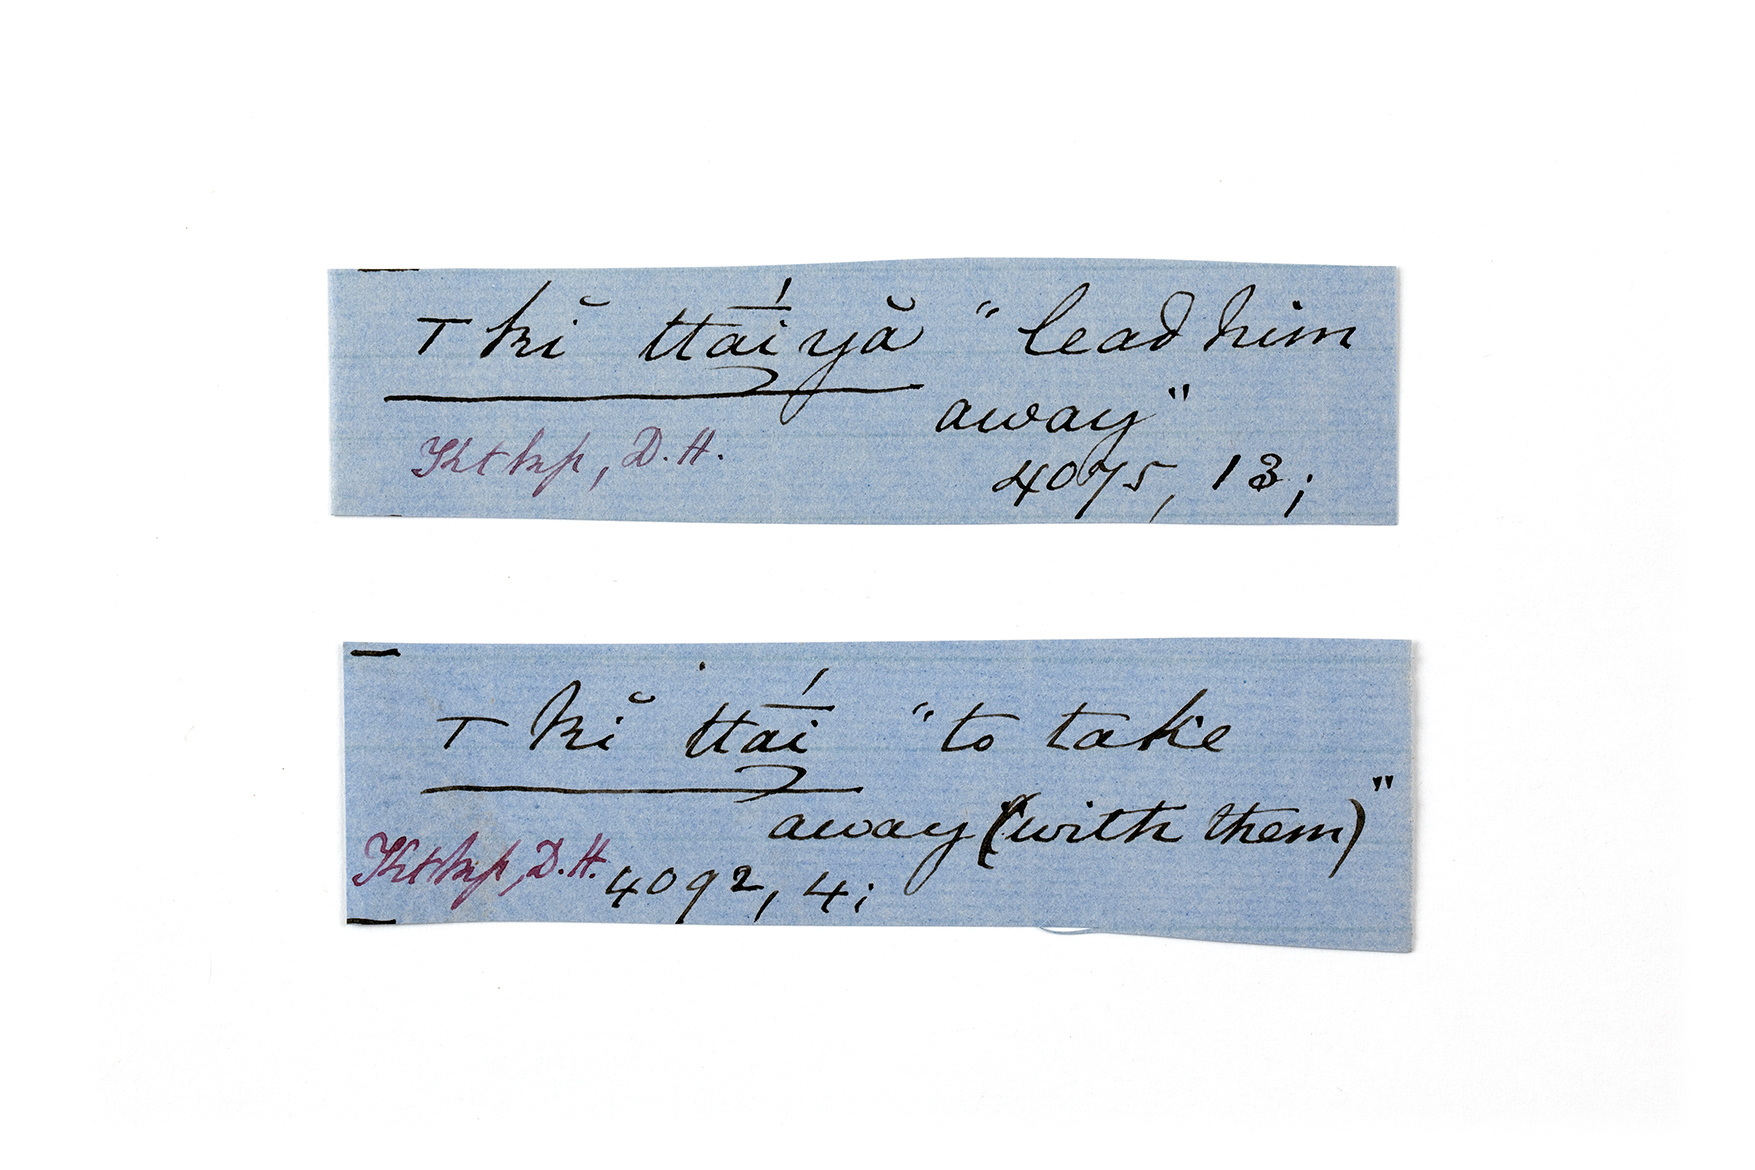 ⊤ kĭ ttā́i yă "lead him
away"
Ktkp, D.H.
4075, 13;
⊤ kĭ ttā́i "to take
away (with them)"
Ktkp, D.H. 4092, 4;